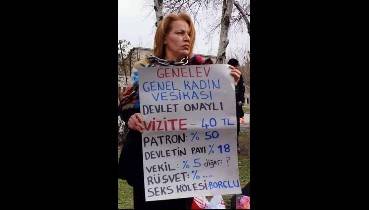 GENELEV
GENEL KADIN
VESİKASI
DEVLET ONAYLI
VİZİTE = 40 TL
PATRON: % 50
DEVLETİN PAYI % 18
VEKİL: % 5 diğeri?
RÜŞVET: % ...
SEKS KÖLESİ BORÇLU